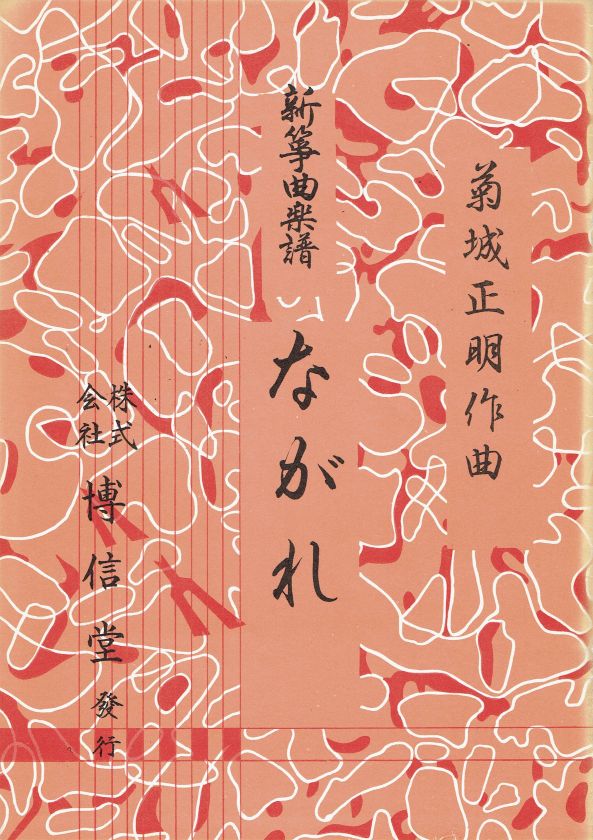 菊城正明作曲
新箏曲楽譜
ながれ
株式会社
博信堂發行